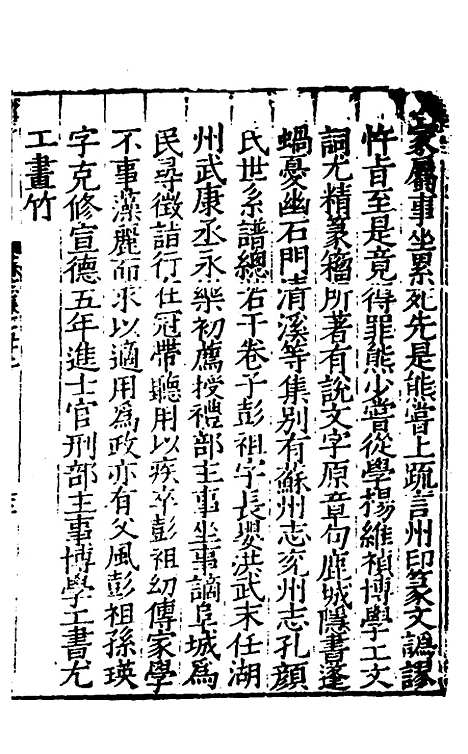 家屬事坐累死先是熊嘗上疏言州印篆文譌謬
忤旨至是竟得罪熊少嘗從學楊維禎博學工文
詞尤精篆籀所著有說文字原章句鹿城隱書蓬
蝸憂幽石門清溪等集別有蘇州志兖州志孔顏
氏世系譜總若干卷子彭祖字長嬰洪武末任湖
州武康丞永樂初薦授禮部主事坐事謫阜城為
民尋徵詣行在冠帶聽用以疾卒彭祖幼傳家學
不事藻麗而求以適用為政亦有父風彭祖孫瑛
字克修宣德五年進士官刑部主事博學工書尤
工畫竹